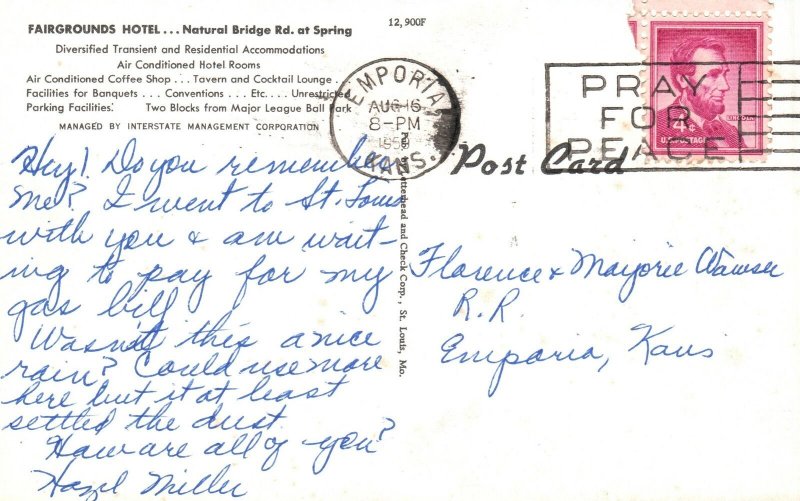 FAIRGROUNDS HOTEL... Natural Bridge Rd. at Spring
Diversified Transient and Residential Accommodations
Air Conditioned Hotel Rooms
Air Conditioned Coffee Shop . . . Tavern and Cocktail Lounge
Facilities for Banquets . . . Conventions . . . Etc. . . . Unrestricted
Parking Facilities. Two Blocks from Major League Ball Park
MANAGED BY INTERSTATE MANAGEMENT CORPORATION
12,900F
EMPORIA
AUG 16
8-PM
KANS.
PRAY
FOR
PEACE
LINCOLN
4¢
U.S. POSTAGE
Post Card
Letterhead and Check Corp., St. Louis, Mo.
Hey! Do you remember
me? I went to St. Louis
with you & am wait-
ing to pay for my
gas bill
Wasn't this a nice
rain? Could use more
here but it at least
settled the dust.
How are all of you?
Hazel Miller
Florence & Marjorie
R.R.
Emporia, Kans